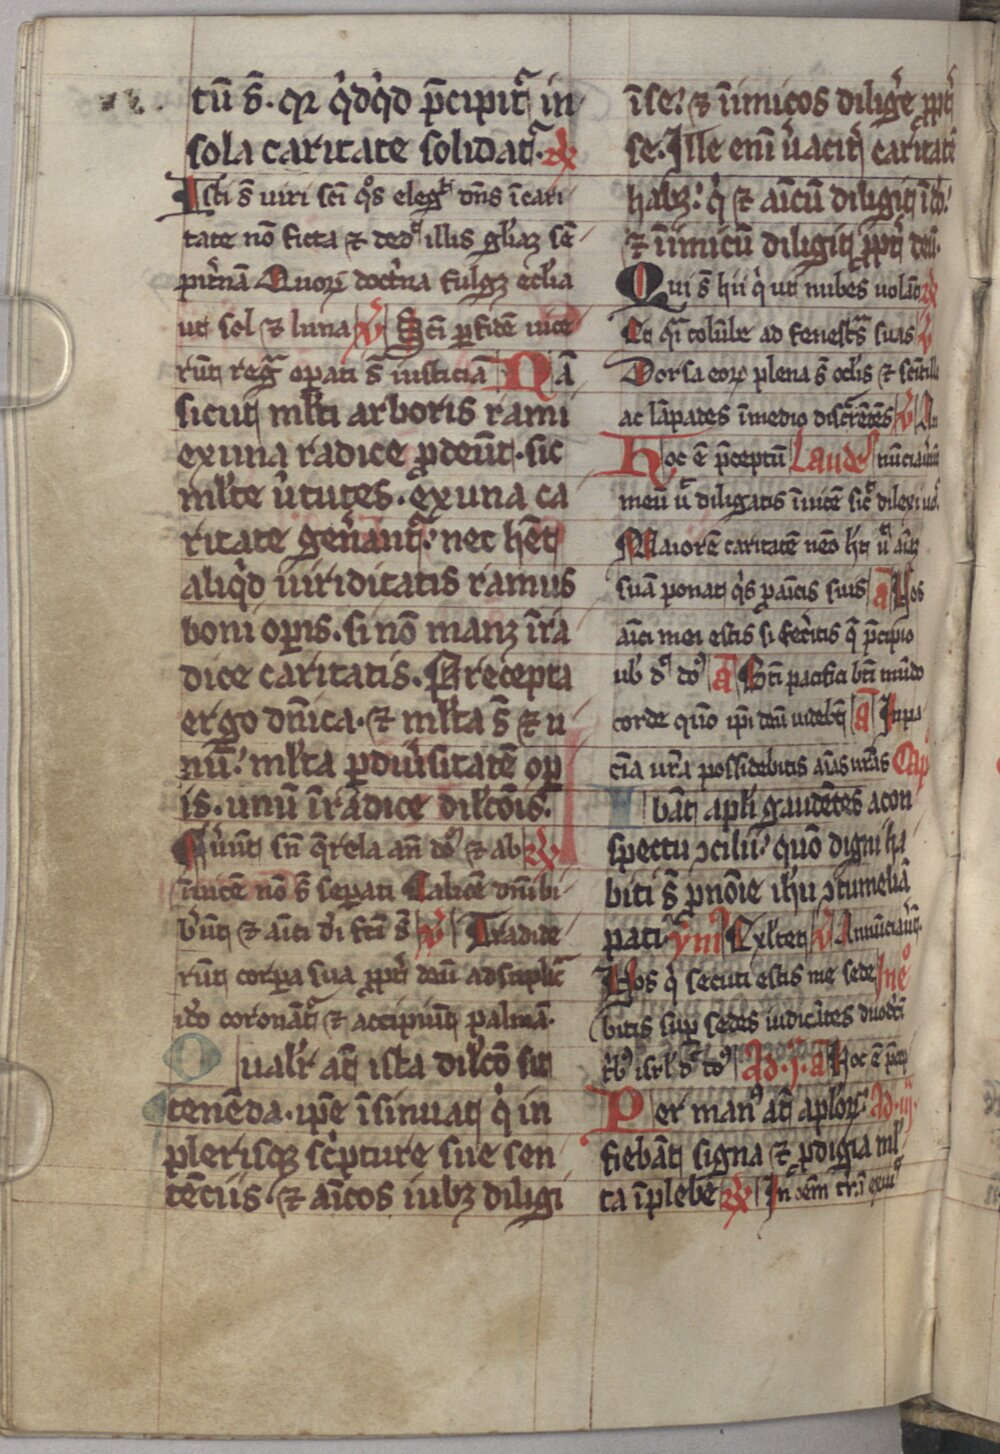 tū s̄. qꝛ q̇dq̇d p̄cipit᷑ in
sola caritate solidat᷑. ℟
Isti s̄ uiri sc̄i qͦs elegͭ dn̄s ī cari
tate nō ficta ⁊ dedͭ illis gl̄iaꝫ sē
pit̄nā Quoꝝ doctͥna fulgꝫ eccl̄ia
ut sol ⁊ luna ℣ Sc̄i ꝑ fidē uice
rūt regͣ oꝑati s̄ iusticiā Nā
sicut ml̄ti arboris rami
ex una radice ꝓdeūt. sic
ml̄te ūtutes. ex una ca
ritate gen̄ant᷑. nec hēt
aliq̇d uiriditatis ramus
boni oꝑis. si nō manꝫ ī ra
dice caritatis. Precepta
ergo dn̄ica. ⁊ ml̄ta s̄ ⁊ u
nū. ml̄ta ꝑ diuīsitatē oꝑ
is. unū ī radice dil̄cōis.
Fūūt sn̄ q̄rela an̄ dō ⁊ ab ℟
īuicē nō s̄ seꝑati Calicē dn̄i bi
b̄ūt ⁊ aīci dī fc̄i s̄ ℣ Tradide
rūt corꝑa sua ꝓpt̄ deū ad supliciͣ
iō coronāt᷑ ⁊ accipiūt palmā.
Qualit̄ at̄ ista dil̄cō sit
tenēda. ip̄e īsinuat q̇ in
plerisqꝫ sc̄pture sue sen
tēciis. ⁊ aīcos iubꝫ diligi
ī se. ⁊ īimicos diliḡe ꝓpt̄
se. Ille enī ūacit̄ caritatē
habꝫ. q̇ ⁊ aīcū diligit ī dō.
⁊ īimicū diligit ꝓpt̄ deū.
Qui s̄ hii q̇ ut nubes uolāt ℟
Et qͣi colūbe ad fenestͣs suas ℣
Dorsa eoꝝ plena s̄ oclis ⁊ scītill
ac lāpades ī medio discr̄etēs ℣
Hoc ē p̄ceptū Laudes nūciauūt
meū ut̄ diligatis īuicē sicͭ dilexi uos
Maiorē caritatē nēo h̄t ut̄ aīā
suā ponat q̇s ꝓ aīcis suis a̅ Vos
aīci mei estis si fec̄itis q̄ p̄cipio
ub̄ dͭ dō a̅ Bt̄i pacifici bt̄i mūdo
corde qūo ip̄i deū uidebūt a̅ In pa
cīa ur̄a possidebitis aīas ur̄as Cap
Ibāt apl̄i gaudētes a con
spectu ꝯcilii. quō digni ha
biti s̄ ꝓ nōie ih̄u ꝯtumeliā
pati. ym̄ Exl̄tet ℣ Annūciauūt
Vos q̇ secuti estis me sede In eͦ
bitis suꝑ sedes iudicātes duodēcī
t̄b᷒ isrl̄ d̄ dō Ad. j. a̅ Hoc ē p̄ceͫ
Per man᷒ at̄ apl̄oꝝ. Ad. iij.
fiebāt signa ⁊ ꝓdigia ml̄
ta ī plebe ℟ In oēm t̄rā exiuͭ